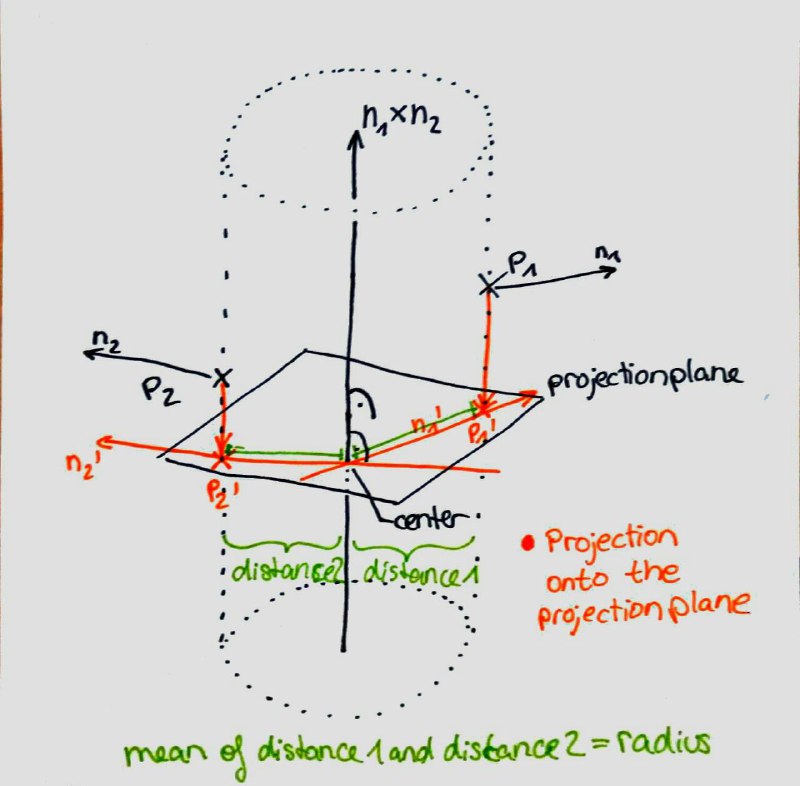 n₁×n₂
P₁
n₁
n₂
P₂
projectionplane
n₁'
P₁'
n₂'
P₂'
center
distance2
distance1
Projection
onto the
projectionplane
mean of distance 1 and distance 2 = radius